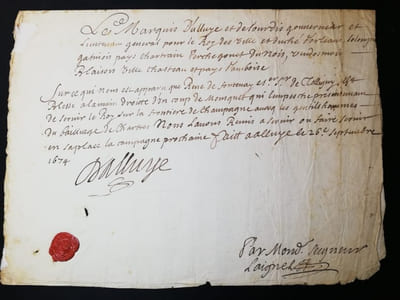 Le Marquis Dalluye et de Sourdis gouverneur et
Lieutenant general pour le Roy des Ville et duché Dorleans
pays Chartrain Perchegouet Dunois, Vendosmois
Blaisois Ville Chasteau et pays Damboise
Sur ce qui Nous est apparu que René de
Blessé a la main droitte d'un coup de Mousquet qui lempesche presentement
de servir le Roy sur la frontiere de Champagne avecq les gentilshommes
du Bailliage de Chartres Nous Lavons Remis a servir ou faire servir
en sa place la campagne prochaine faict a alluye le 26e Septembre
1674
Dalluye
Par Mond. Seigneur
Laignel